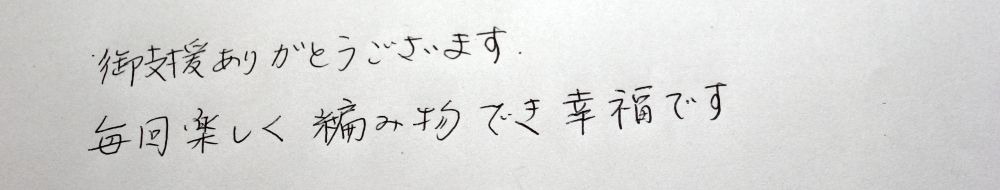 御支援ありがとうございます.
毎回楽しく編み物でき幸福です